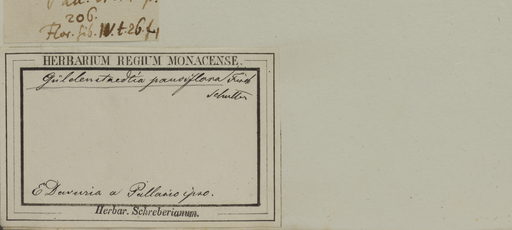 206.
Flor. sib. IV. t. 26. f. 1
HERBARIUM REGIUM MONACENSE.
Güldenstaedtia pauciflora Fisch
E Davuria a Pallasio ipso.
Herbar. Schreberianum.